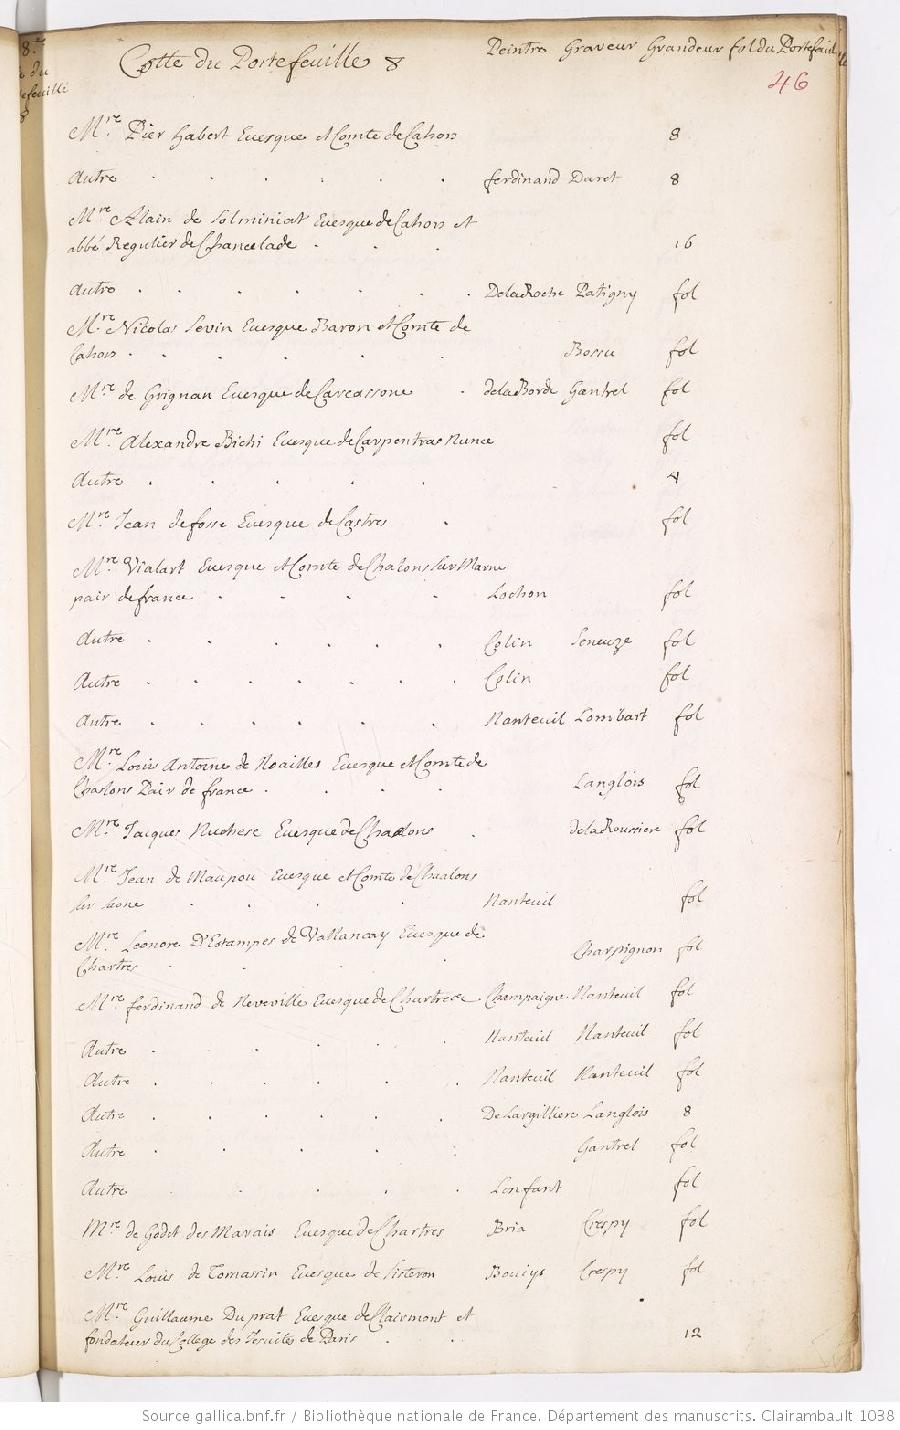 Cotte du Portefeuille 8 Peintre Graveur Grandeur fol du Portefeuil
46
Mre. Pier habert Euesque et Comte de Cahors 8
Autre ferdinand Daret 8
Mre. Alain de Solminiat Euesque de Cahors et
abbé Regulier de Chancelade 16
Autre DelaRoche Patigny fol
Mre. Nicolas Sevin Euesque Baron et Comte de
Cahors Bossu fol
Mre. de Grignan Euesque de Carcassone delaBorde Gantrel fol
Mre. Alexandre Bichi Euesque de Carpentras Nunce fol
Autre 4
Mre. Jean de fosse Euesque de Castres fol
Mre. Vialart Euesque et Comte de Chalons sur Marne
pair de france Lochon fol
Autre Colin fol
Autre Colin fol
Autre Nanteuil Lombart fol
Mre. Louis Antoine de Noailles Euesque et Comte de
Chaslons Pair de france Langlois fol
Mre. Jacques Euesque de Chaalons delaRoussiere fol
Mre. Jean de Maupou Euesque et Comte de Chaalons
sur saone Nanteuil fol
Mre. Leonore D'Estampes de Vallancay Euesque de
Chartres Charpignon fol
Mre. ferdinand de Neveville Euesque de Chartres Champaigne Nanteuil fol
Autre Nanteuil Nanteuil fol
Autre Nanteuil Nanteuil fol
Autre De Largilliere Langlois 8
Autre Gantrel fol
Autre Lenfant fol
Mre. de Godet des Marais Euesque de Chartres Bria Crespy fol
Mre. Louis de Tomassin Euesque de Sisteron Bouiys Crespy fol
Mre. Guillaume Du prat Euesque de Clairmont et
fondateur du College des Jesuites de Paris 12
Source gallica.bnf.fr / Bibliothèque nationale de France. Département des manuscrits. Clairambault 1038